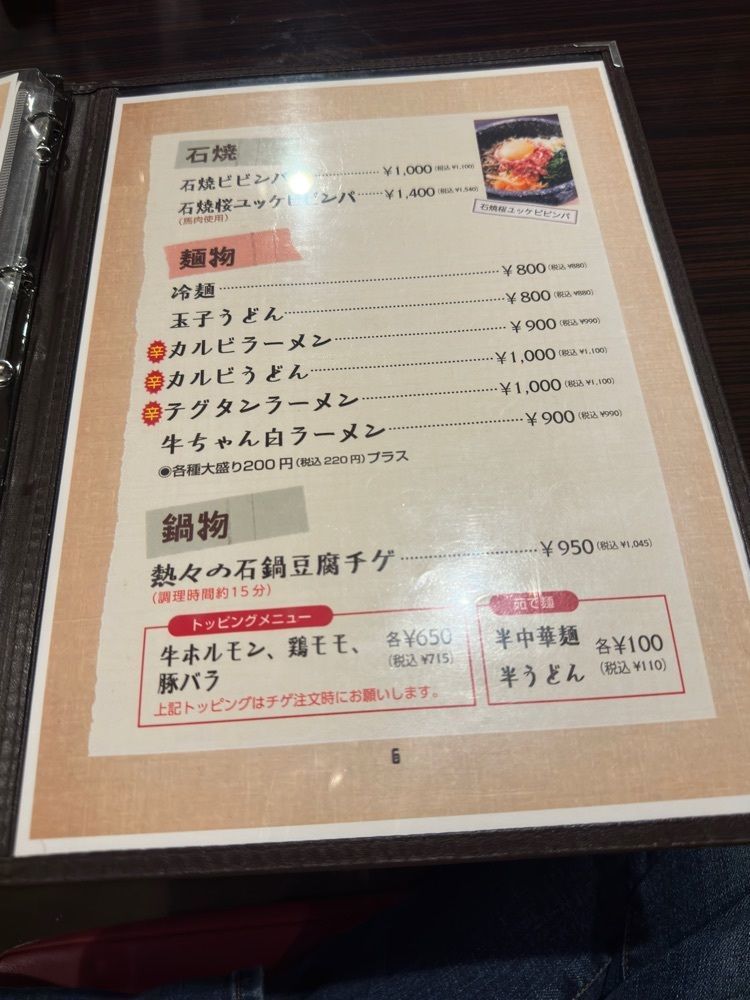 石焼
石焼ビビンバ ¥1,000 (税込 ¥1,100)
石焼桜ユッケビビンバ ¥1,400 (税込 ¥1,540)
(馬肉使用)
石焼桜ユッケビビンバ
麺物
冷麺 ¥800 (税込 ¥880)
玉子うどん ¥800 (税込 ¥880)
辛 カルビラーメン ¥900 (税込 ¥990)
辛 カルビうどん ¥1,000 (税込 ¥1,100)
辛 テグタンラーメン ¥1,000 (税込 ¥1,100)
牛ちゃん白ラーメン ¥900 (税込 ¥990)
◉各種大盛り200円(税込220円)プラス
鍋物
熱々の石鍋豆腐チゲ ¥950 (税込 ¥1,045)
(調理時間約15分)
トッピングメニュー
牛ホルモン、鶏モモ、 各¥650
豚バラ (税込 ¥715)
上記トッピングはチゲ注文時にお願いします。
茹で麺
半中華麺 各¥100
半うどん (税込 ¥110)
6